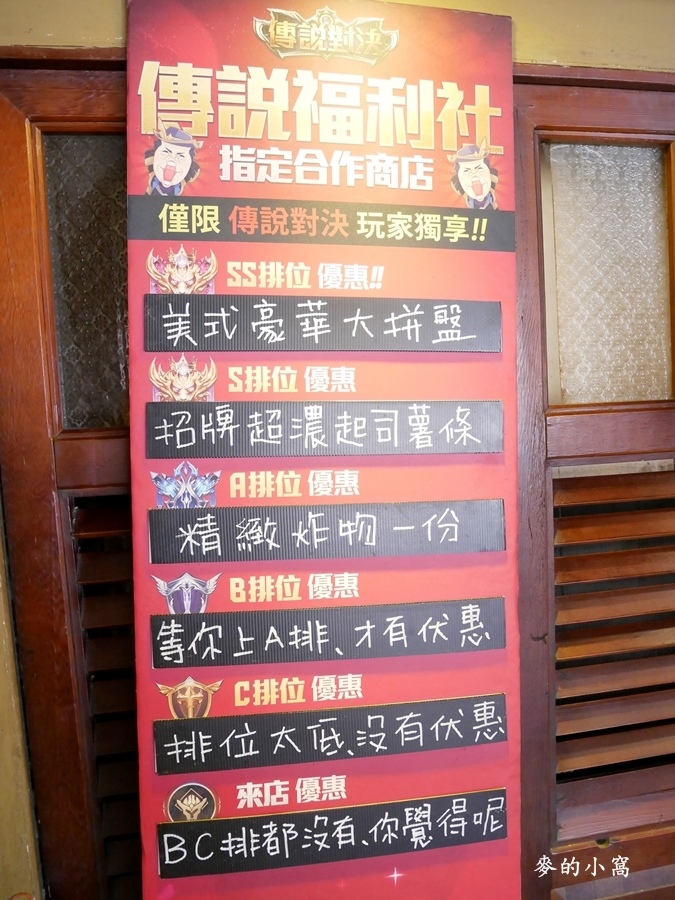 傳說對決
傳說福利社
指定合作商店
僅限 傳說對決 玩家獨享!!
SS排位 優惠!!
美式豪華大拼盤
S排位 優惠
招牌超濃起司薯條
A排位 優惠
精緻炸物一份
B排位 優惠
等你上A排、才有伏惠
C排位 優惠
排位太底、沒有伏惠
來店 優惠
BC排都沒有、你覺得呢
麥的小窩